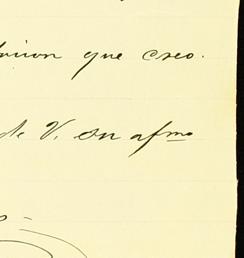 que creo.
de V. su afmo